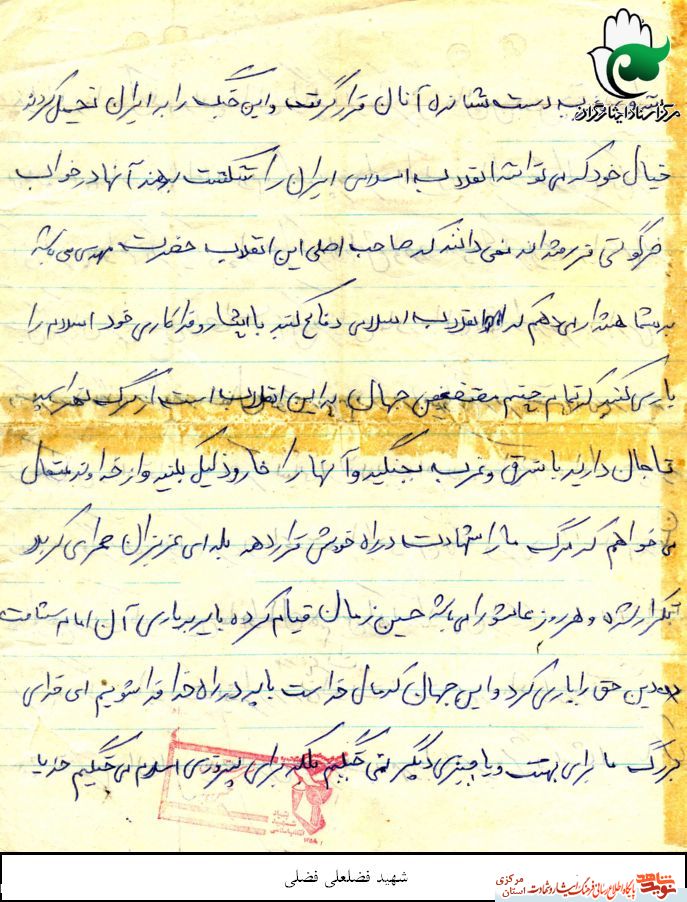 مرکز اسناد ایثارگران
شرق و غرب دست نشانده آنان قرار گرفت و این جنگ را بر ایران تحمیل کردند
خیال خود که می توانند انقلاب اسلامی ایران را شکست بدهند آنها در خواب
خرگوشی فرو رفته اند نمی دانند که صاحب اصلی این انقلاب حضرت مهدی می باشد
به شما هشدار می دهم که از انقلاب اسلامی دفاع کنید با ایثار و فداکاری خود اسلام را
یاری کنید که تمام چشم مستضعفین جهان به این انقلاب است از مرگ نهراسید
تا جان دارید با شرق و غرب بجنگید و آنها را خار و ذلیل بکنید و از خداوند متعال
می خواهم که مرگ ما را شهادت در راه خودش قرار دهد بله ای عزیزان صحرای کربلا
تکرار شده و هر روز عاشورا می باشد حسین زمان قیام کرده باید به یاری آن امام شتافت
دین حق را یاری کرد و این جهان که مال خدا است باید در راه خدا فدا شویم ای خدای
بزرگ ما برای بهشت و یا چیزی دیگر نمی جنگیم بلکه برای پیروزی اسلام می جنگیم خدایا
بنیاد شهید انقلاب اسلامی
شهید فضلعلی فضلی
نوید شاهد
پایگاه اطلاع رسانی فرهنگ ایثار و شهادت استان مرکزی